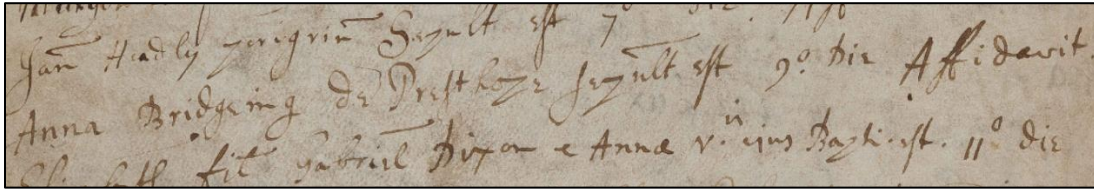 Sam̄ Headly peregrin̄ Sepult est 7º Die
Anna Bridgeing de Presthope Sepult̄ est 9º. Die Affidavit.
Elizabeth fil̄ Gabriel̄ Dixon e Annæ v. ejus Bapti. est. 11º die